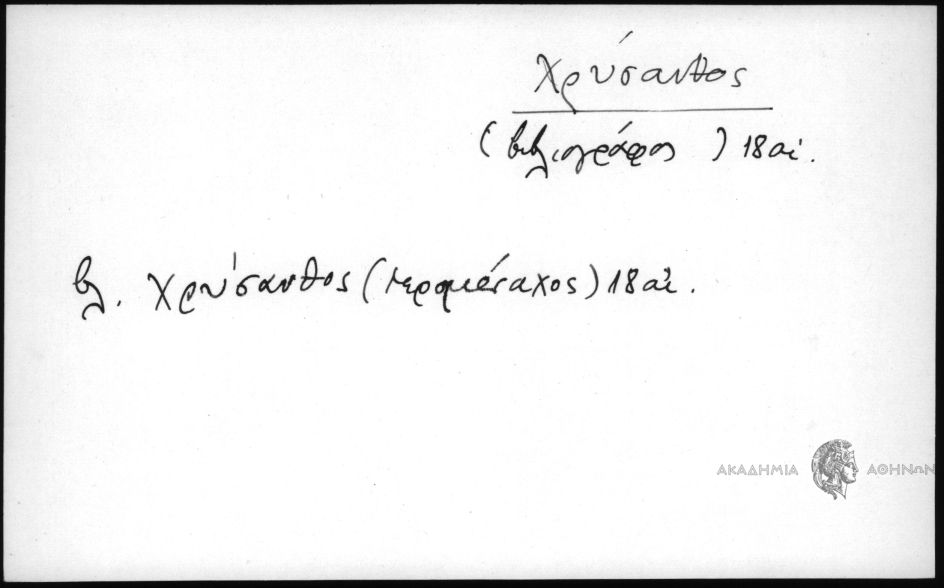 Χρύσανθος
(βιβλιογράφος) 18 αι.
βλ. Χρύσανθος (ιερομόναχος) 18 αι.
ΑΚΑΔΗΜΙΑ ΑΘΗΝΩΝ